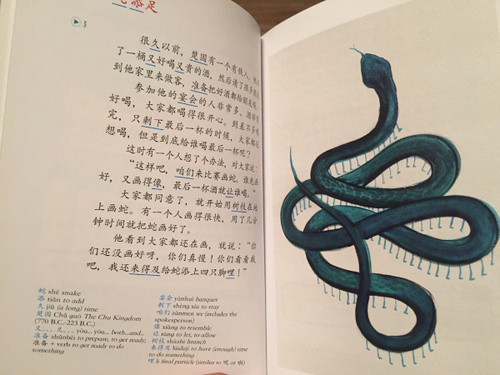 蛇添足
3
很久以前，楚国有一个有钱人，
了一桶又好喝又贵的酒，然后请了很多
到他家里来做客，准备把好酒都给朋友喝。
参加他的宴会的人非常多，酒
好喝，大家都喝得很开心。到差不多
完，只剩下最后一杯的时候，大家都
想喝，但是到底给谁喝最后一杯呢？
这时有一个人想了个办法，对大家说：
“这样吧，咱们来比赛画蛇。谁先画
好，又画得像，最后一杯酒就让谁喝。”
大家都同意了，就开始用树枝在地
上画蛇。有一个人画得很快，用了几分
钟时间就把蛇画好了。
他看到大家都还在画，就说：“你
们还没画好呀，你们真慢！你们看看我
吧，我还来得及给蛇添上四只脚哩！”
蛇 shé snake
添 tiān to add
久 jiǔ (a long) time
楚国 Chǔ guó The Chu Kingdom
(770 B.C.-223 B.C.)
又……，又…… yòu… yòu… both…and…
准备 zhǔnbèi to prepare, to get ready;
准备 + verb to get ready to do
something
宴会 yànhuì banquet
剩下 shèng xia to stay
咱们 zánmen we (includes the
spokesperson)
像 xiàng to resemble
让 ràng to let, to allow
树枝 shùzhī branch
来得及 láidejí to have (enough) time
to do something
哩 li final particle (similar to 呢 or 啦)